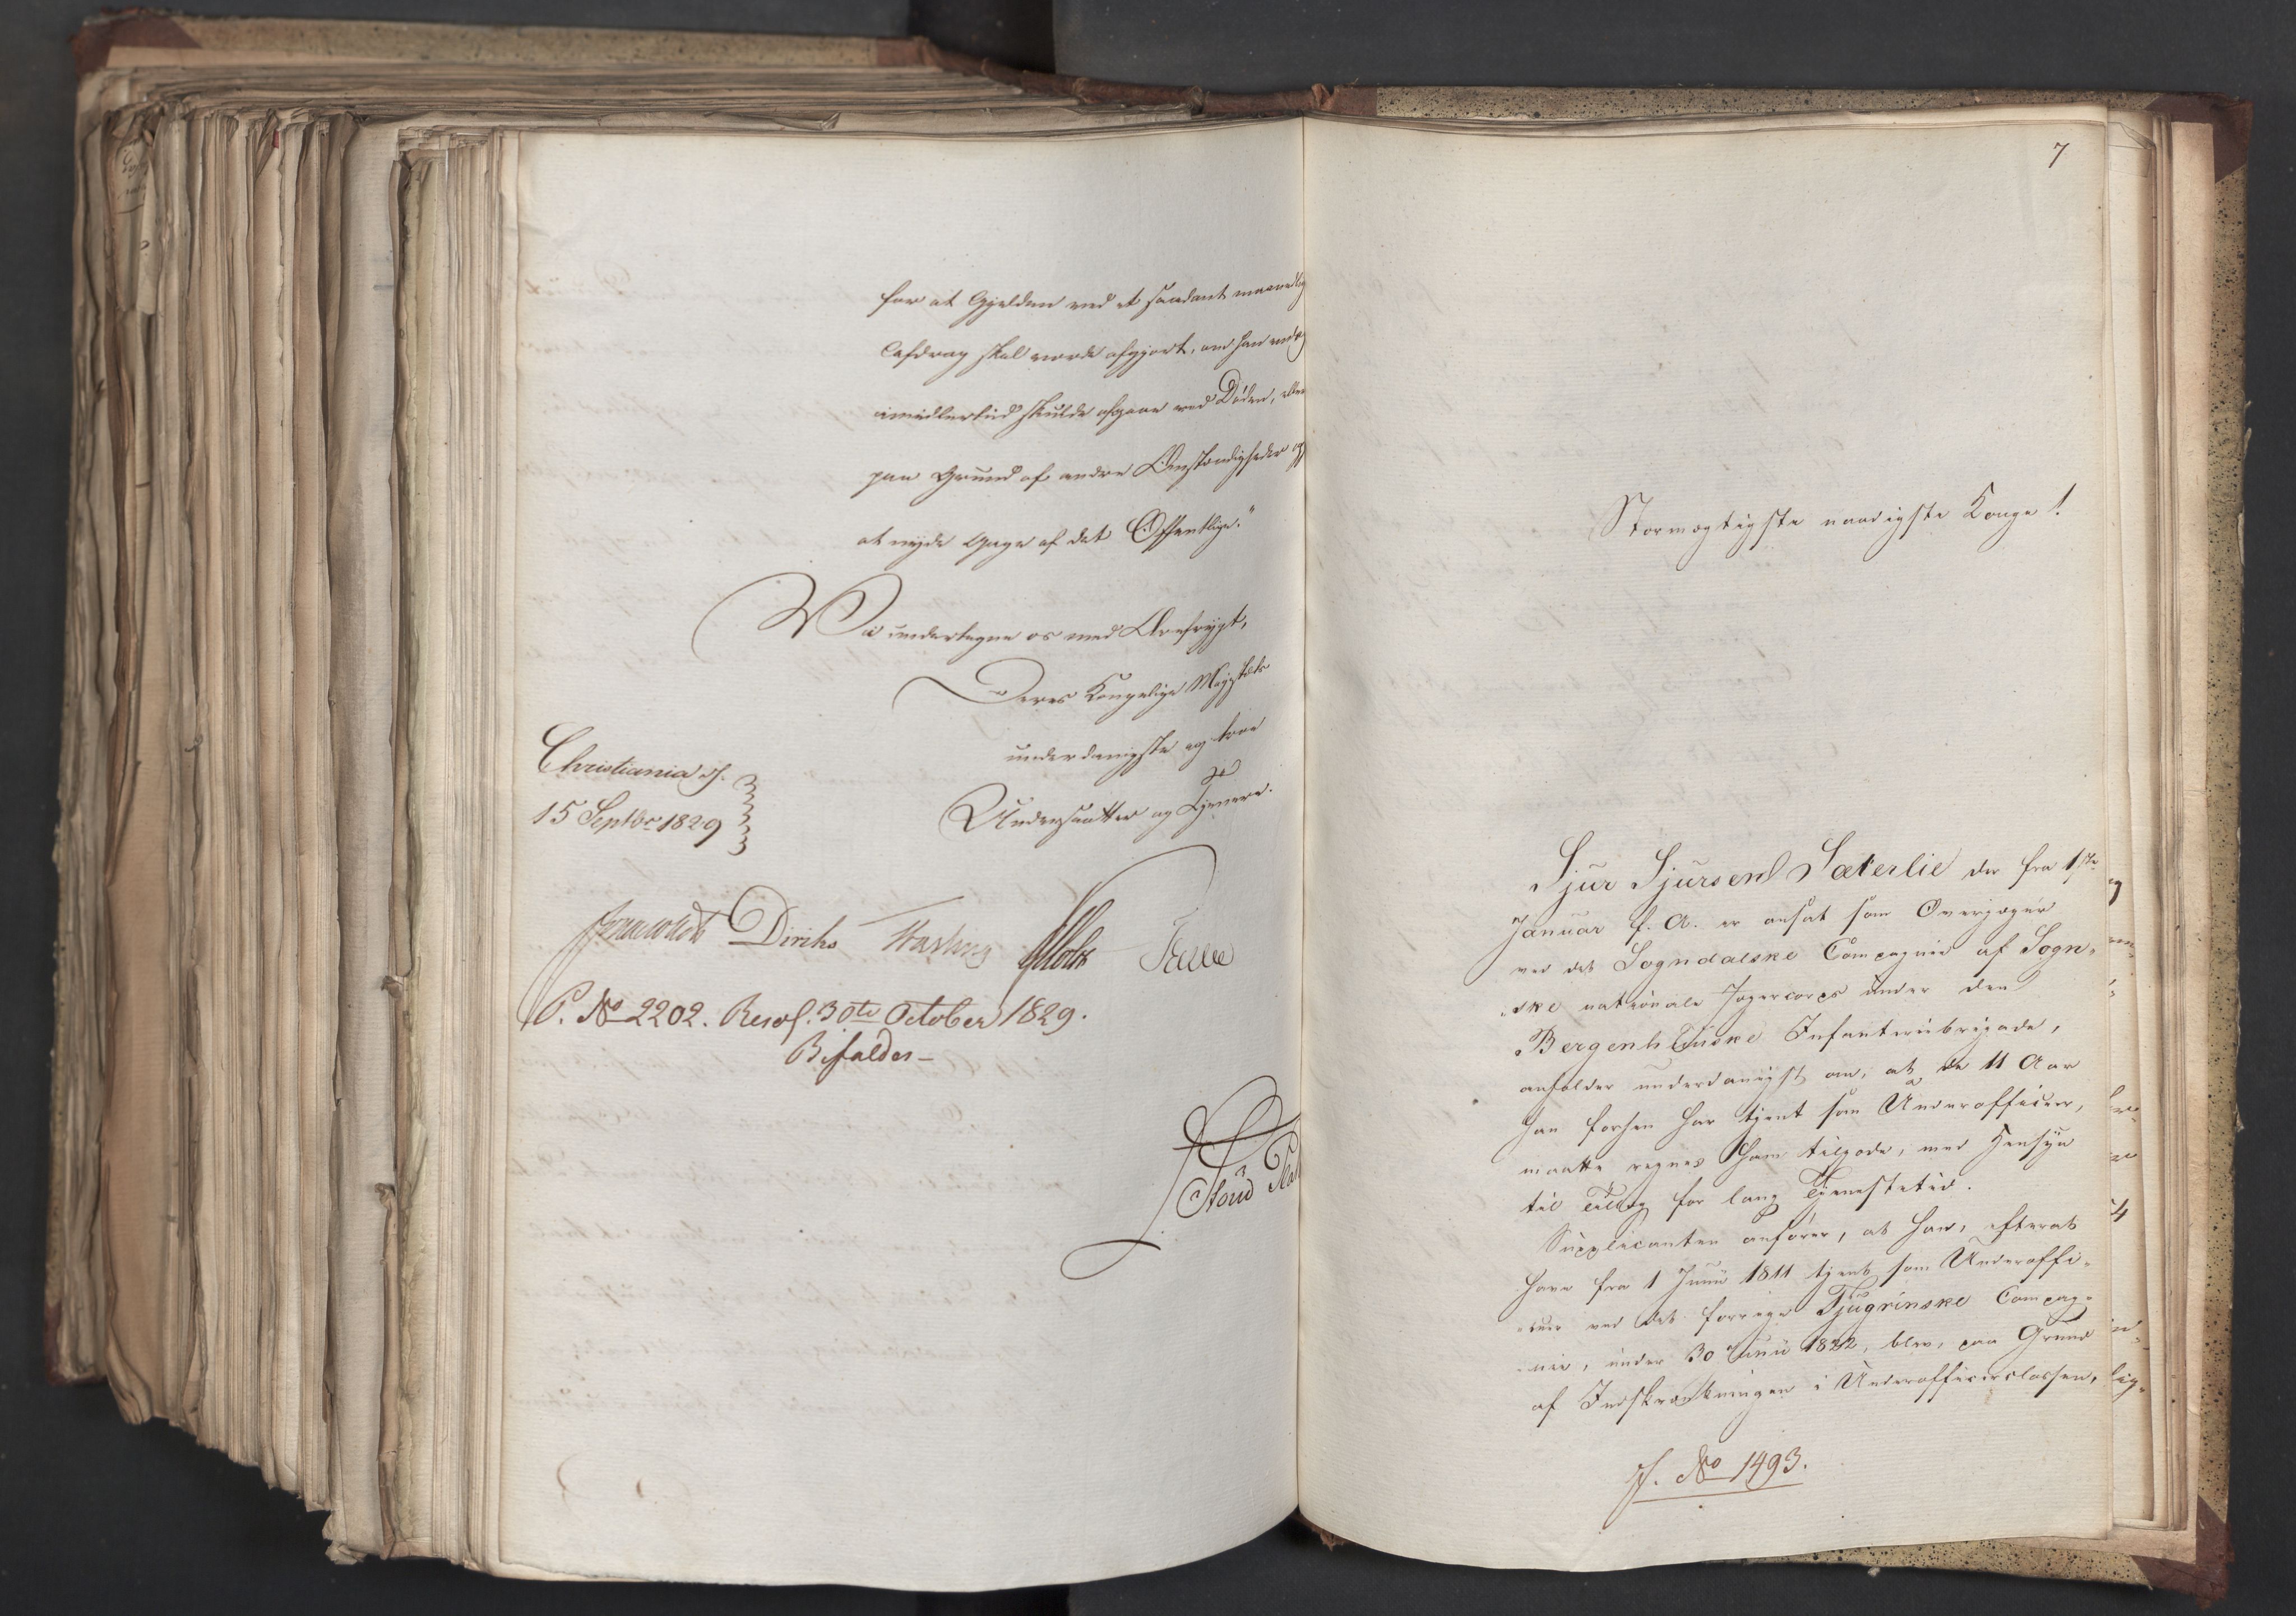 for at Gjelden ved et saadant maanedlig
Afdrag skal vorde afgjort, om han endog
imidlertid skulde afgaae ved Døden, eller
paa Grund af andre Omstændigheder op
at nyde Gage af det Offentlige."
Vi undertegne os med Ærefrygt,
Deres Kongelige Majestæts
underdanigste og troe
Undersaatter og Tjenere.
Christiania d.
15 Septbr 1829
Diriks Fasting Holst
P. No 2202. Resol. 30te October 1829.
Bifaldes –
7
Stormægtigste naadigste Konge!
Sjur Sjursen Sæterlie der fra 1ste
Januar f. A. er ansat som Overjæger
ved det Sogndalske Compagnie af Sogn-
-ske nationale Jægercorps under den
Bergenhuuske Infanteriebrigade,
anholder underdanigst om, at de 11 Aar
han forhen har tjent som Underofficeer,
maatte regnes ham tilgode, med Hensyn
til Tillæg for lang Tjenestetid.
Supplicanten anfører, at han, efterat
have fra 1 Junii 1811 tjent som Underoffi-
-ceer ved det forrige Tjugrinske Compag-
-nie, under 30 Junii 1822, blev, paa Grund
af Indskrænkningen i Underofficeerclassen,
J. No 1493.